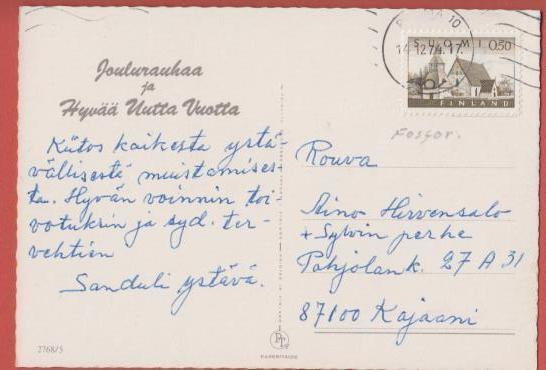 Joulurauhaa
ja
Hyvää Uutta Vuotta
Kiitos kaikesta ystä-
vällisestä muistamises-
ta. Hyvän voinnin toi-
votuksin ja syd. ter-
vehtien
Sanduli ystävä.
2768/5
10
14.12.74.17
SUOMI 0,50
FINLAND
Fosfor.
Rouva
Aino Hirvensalo
+ Sylvin perhe
Pohjolank. 27 A 31
87100 Kajaani
PT
PAPERITAIDE